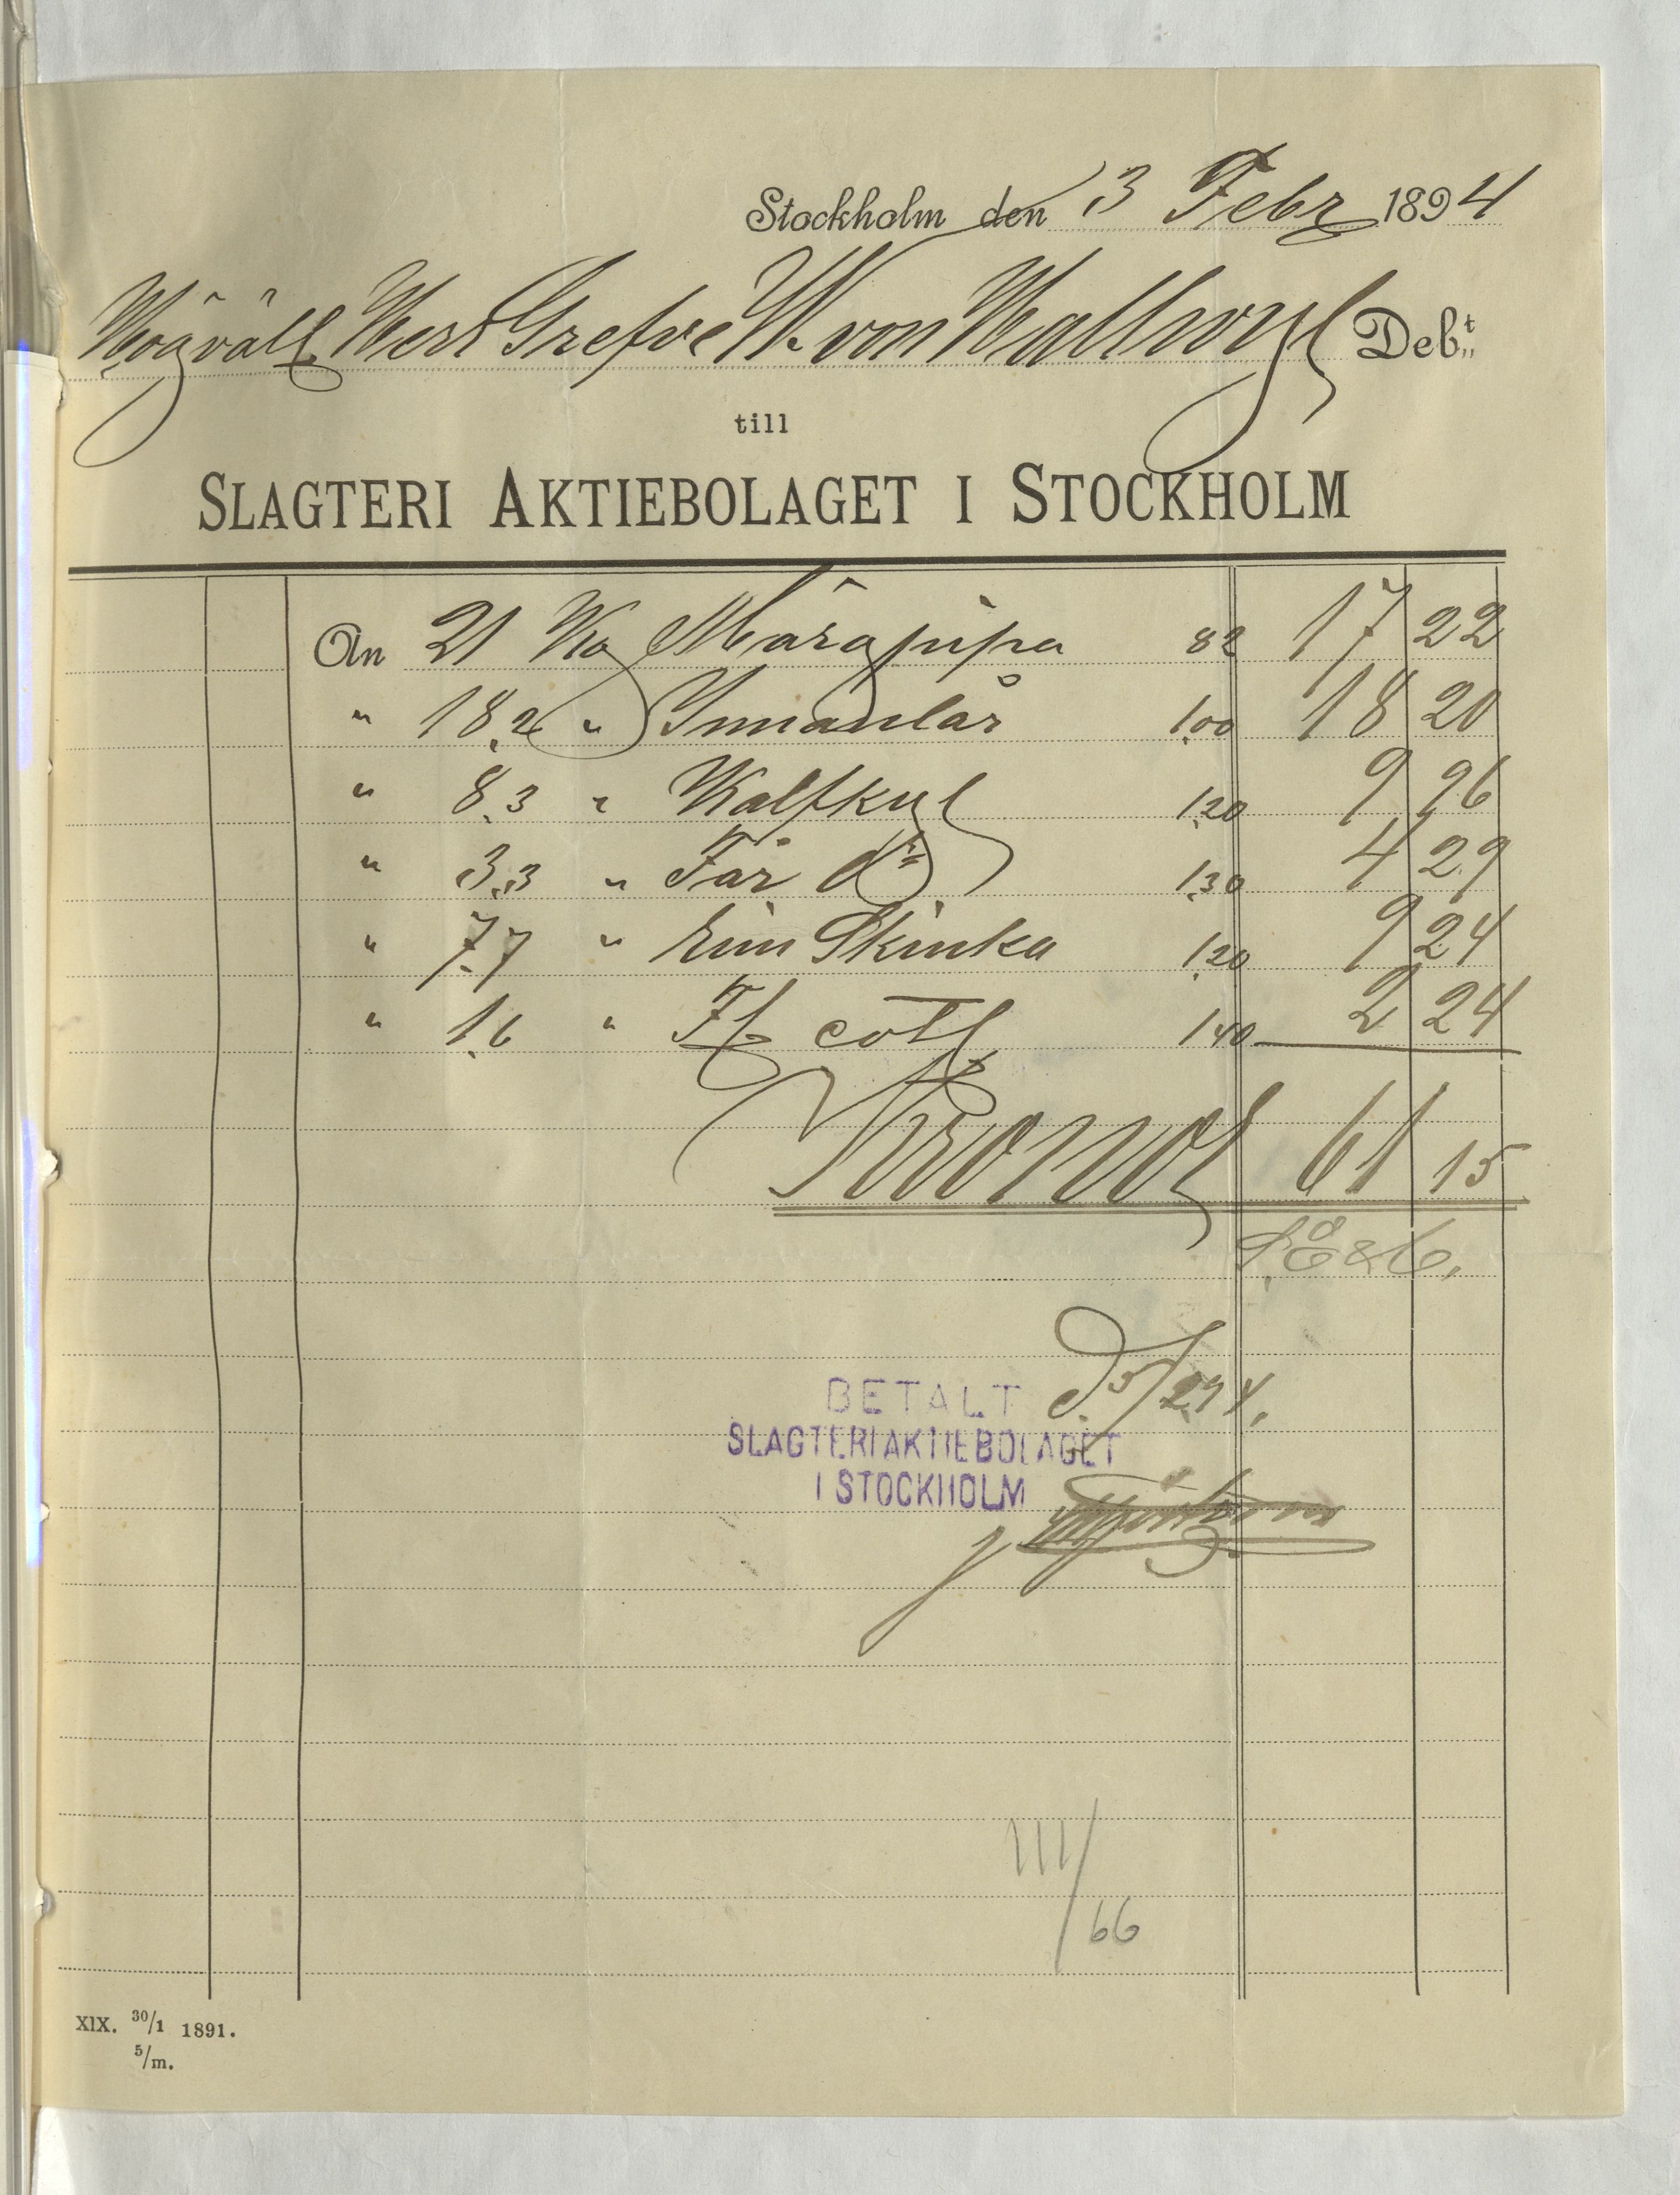 Stockholm den 3 Febr 1894
Högvälb. Herr Grefve W. von Hallwyl Debt.
till
SLAGTERI AKTIEBOLAGET I STOCKHOLM
An 21 Kg Märgpipa 82 17 22
" 18,2 " Innanlår 1.00 18 20
" 8,3 " Kalfkyl 1.20 9 96
" 3,3 " Får do 1.30 4 29
" 7,7 " Rim Skinka 1.20 9 24
" 1,6 " Fl. cotl 1.40 2 24
Kronor 61 15
d. 5/2 94.
BETALT
SLAGTERIAKTIEBOLAGET
I STOCKHOLM
111/66
XIX. 30/1 1891.
5/m.